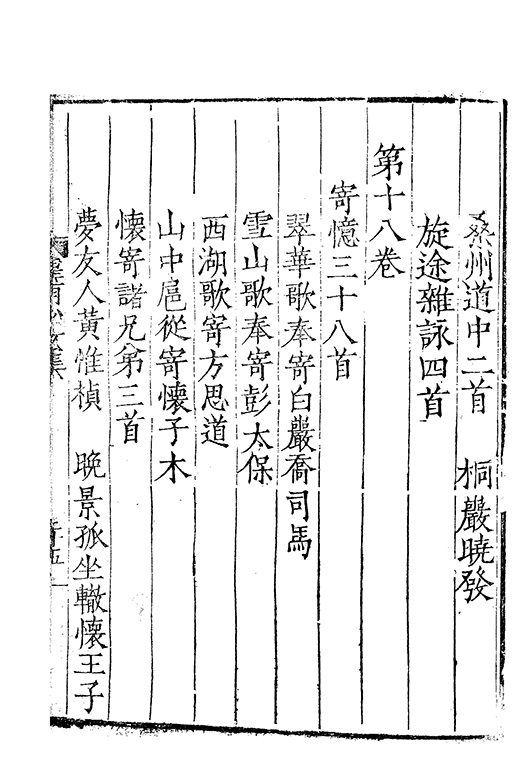 桑州道中二首　桐嚴曉發
旋途雜詠四首
第十八卷
寄憶三十八首
翠華歌奉寄白巖喬司馬
雪山歌奉寄彭太保
西湖歌寄方思道
山中扈從寄懷子木
懷寄諸兄弟三首
夢友人黃惟楨　晩景孤坐轍懷王子